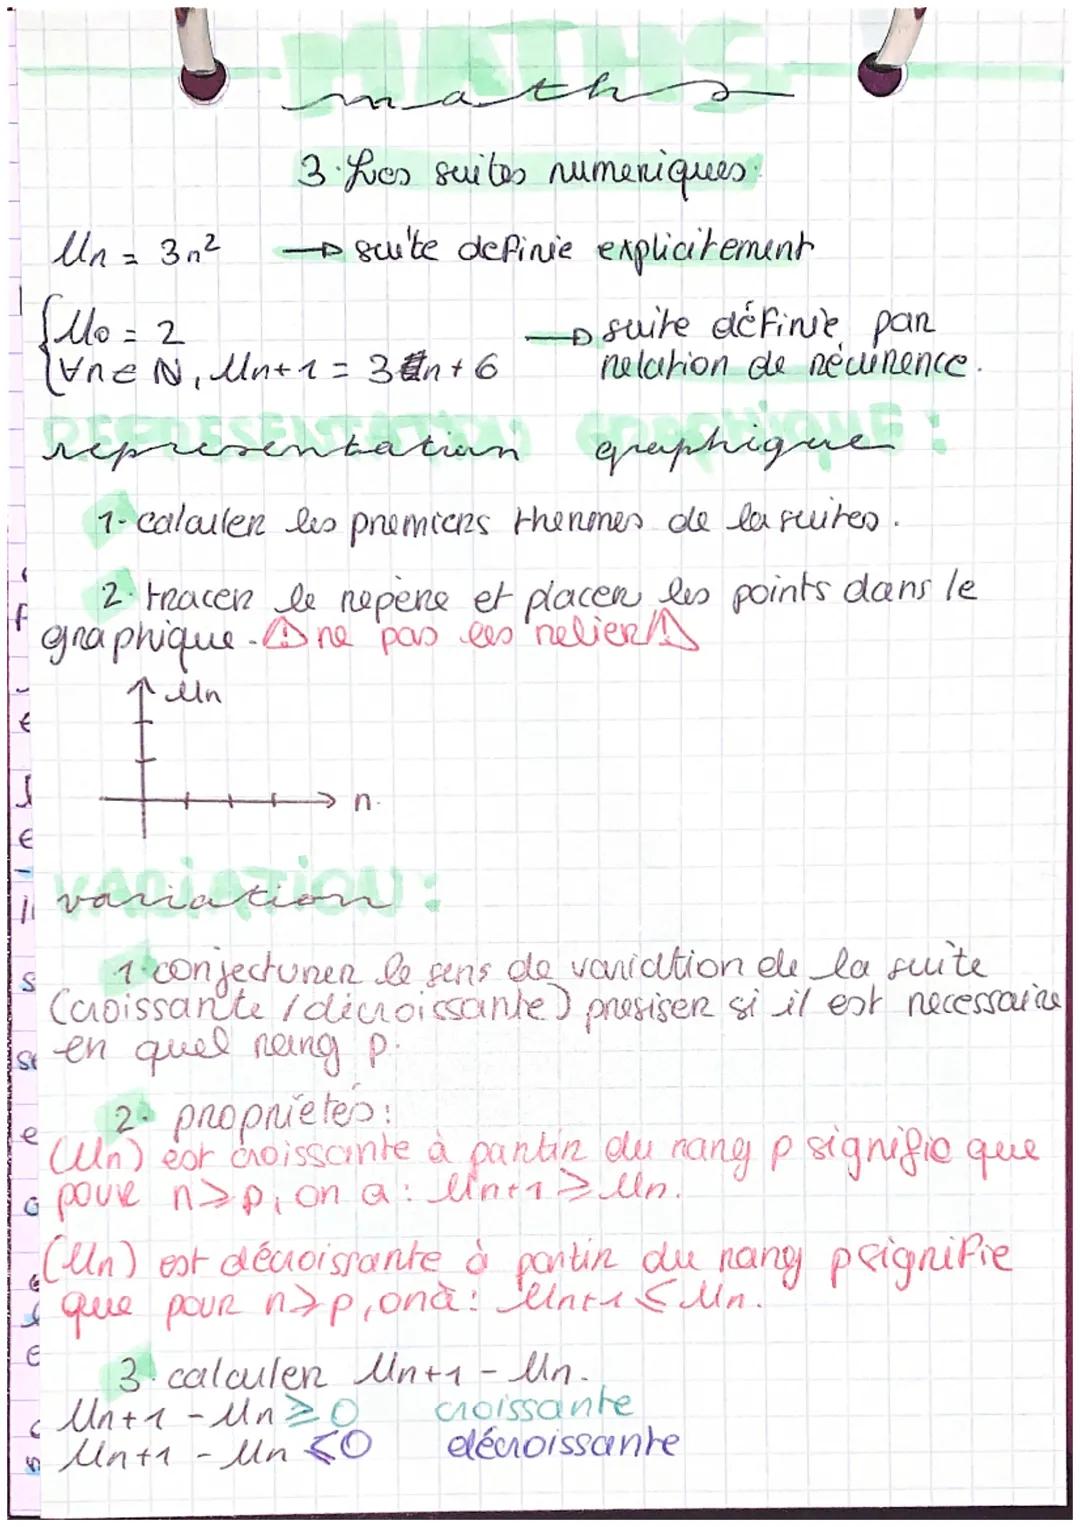 MATHS
maths
3. Les suites numeriques.
Un = 3n² → suite definie explicitement
{U0 = 2 → suite définie par
∀n ∈ N, Un+1 = 3Un + 6 relation de récurrence.
REPRESENTATION GRAPHIQUE :
representation graphique
1- calculer les premiers thermes de la suites.
2. tracer le repère et placer les points dans le
graphique. ⚠ ne pas les relier ⚠
Un
n.
VARIATION :
variation
1. conjecturer le sens de variation de la suite
(croissante / décroissante) presiser si il est necessaire
en quel rang p.
2. proprietés :
(Un) est croissante à partir du rang p signifie que
pour n ≥ p, on a : Un+1 ≥ Un.
(Un) est décroissante à partir du rang p signifie
que pour n ≥ p, on à : Un+1 ≤ Un.
3. calculer Un+1 - Un.
Un+1 - Un ≥ 0 croissante
Un+1 - Un ≤ 0 décroissante